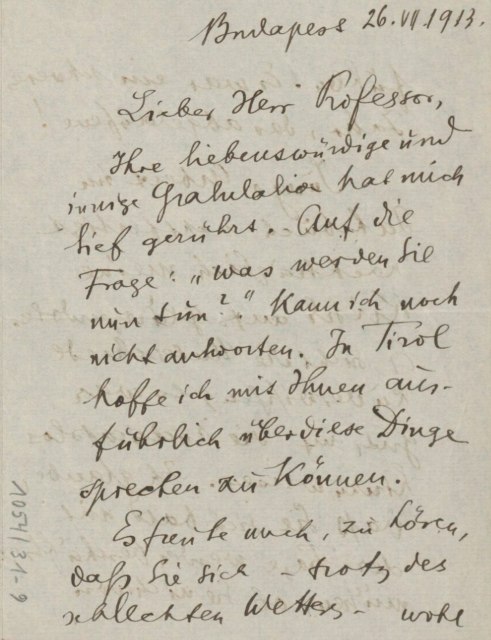 Budapest 26.VII.1913.
Lieber Herr Professor,
Ihre liebenswürdige und
innige Gratulation hat mich
tief gerührt. Auf die
Frage: „was werden Sie
nun tun?“ kann ich noch
nicht antworten. In Tirol
hoffe ich mit Ihnen aus-
führlich über diese Dinge
sprechen zu können.
Es freute mich, zu hören,
daß Sie sich – trotz des
schlechten Wetters – wohl
1054/31-9